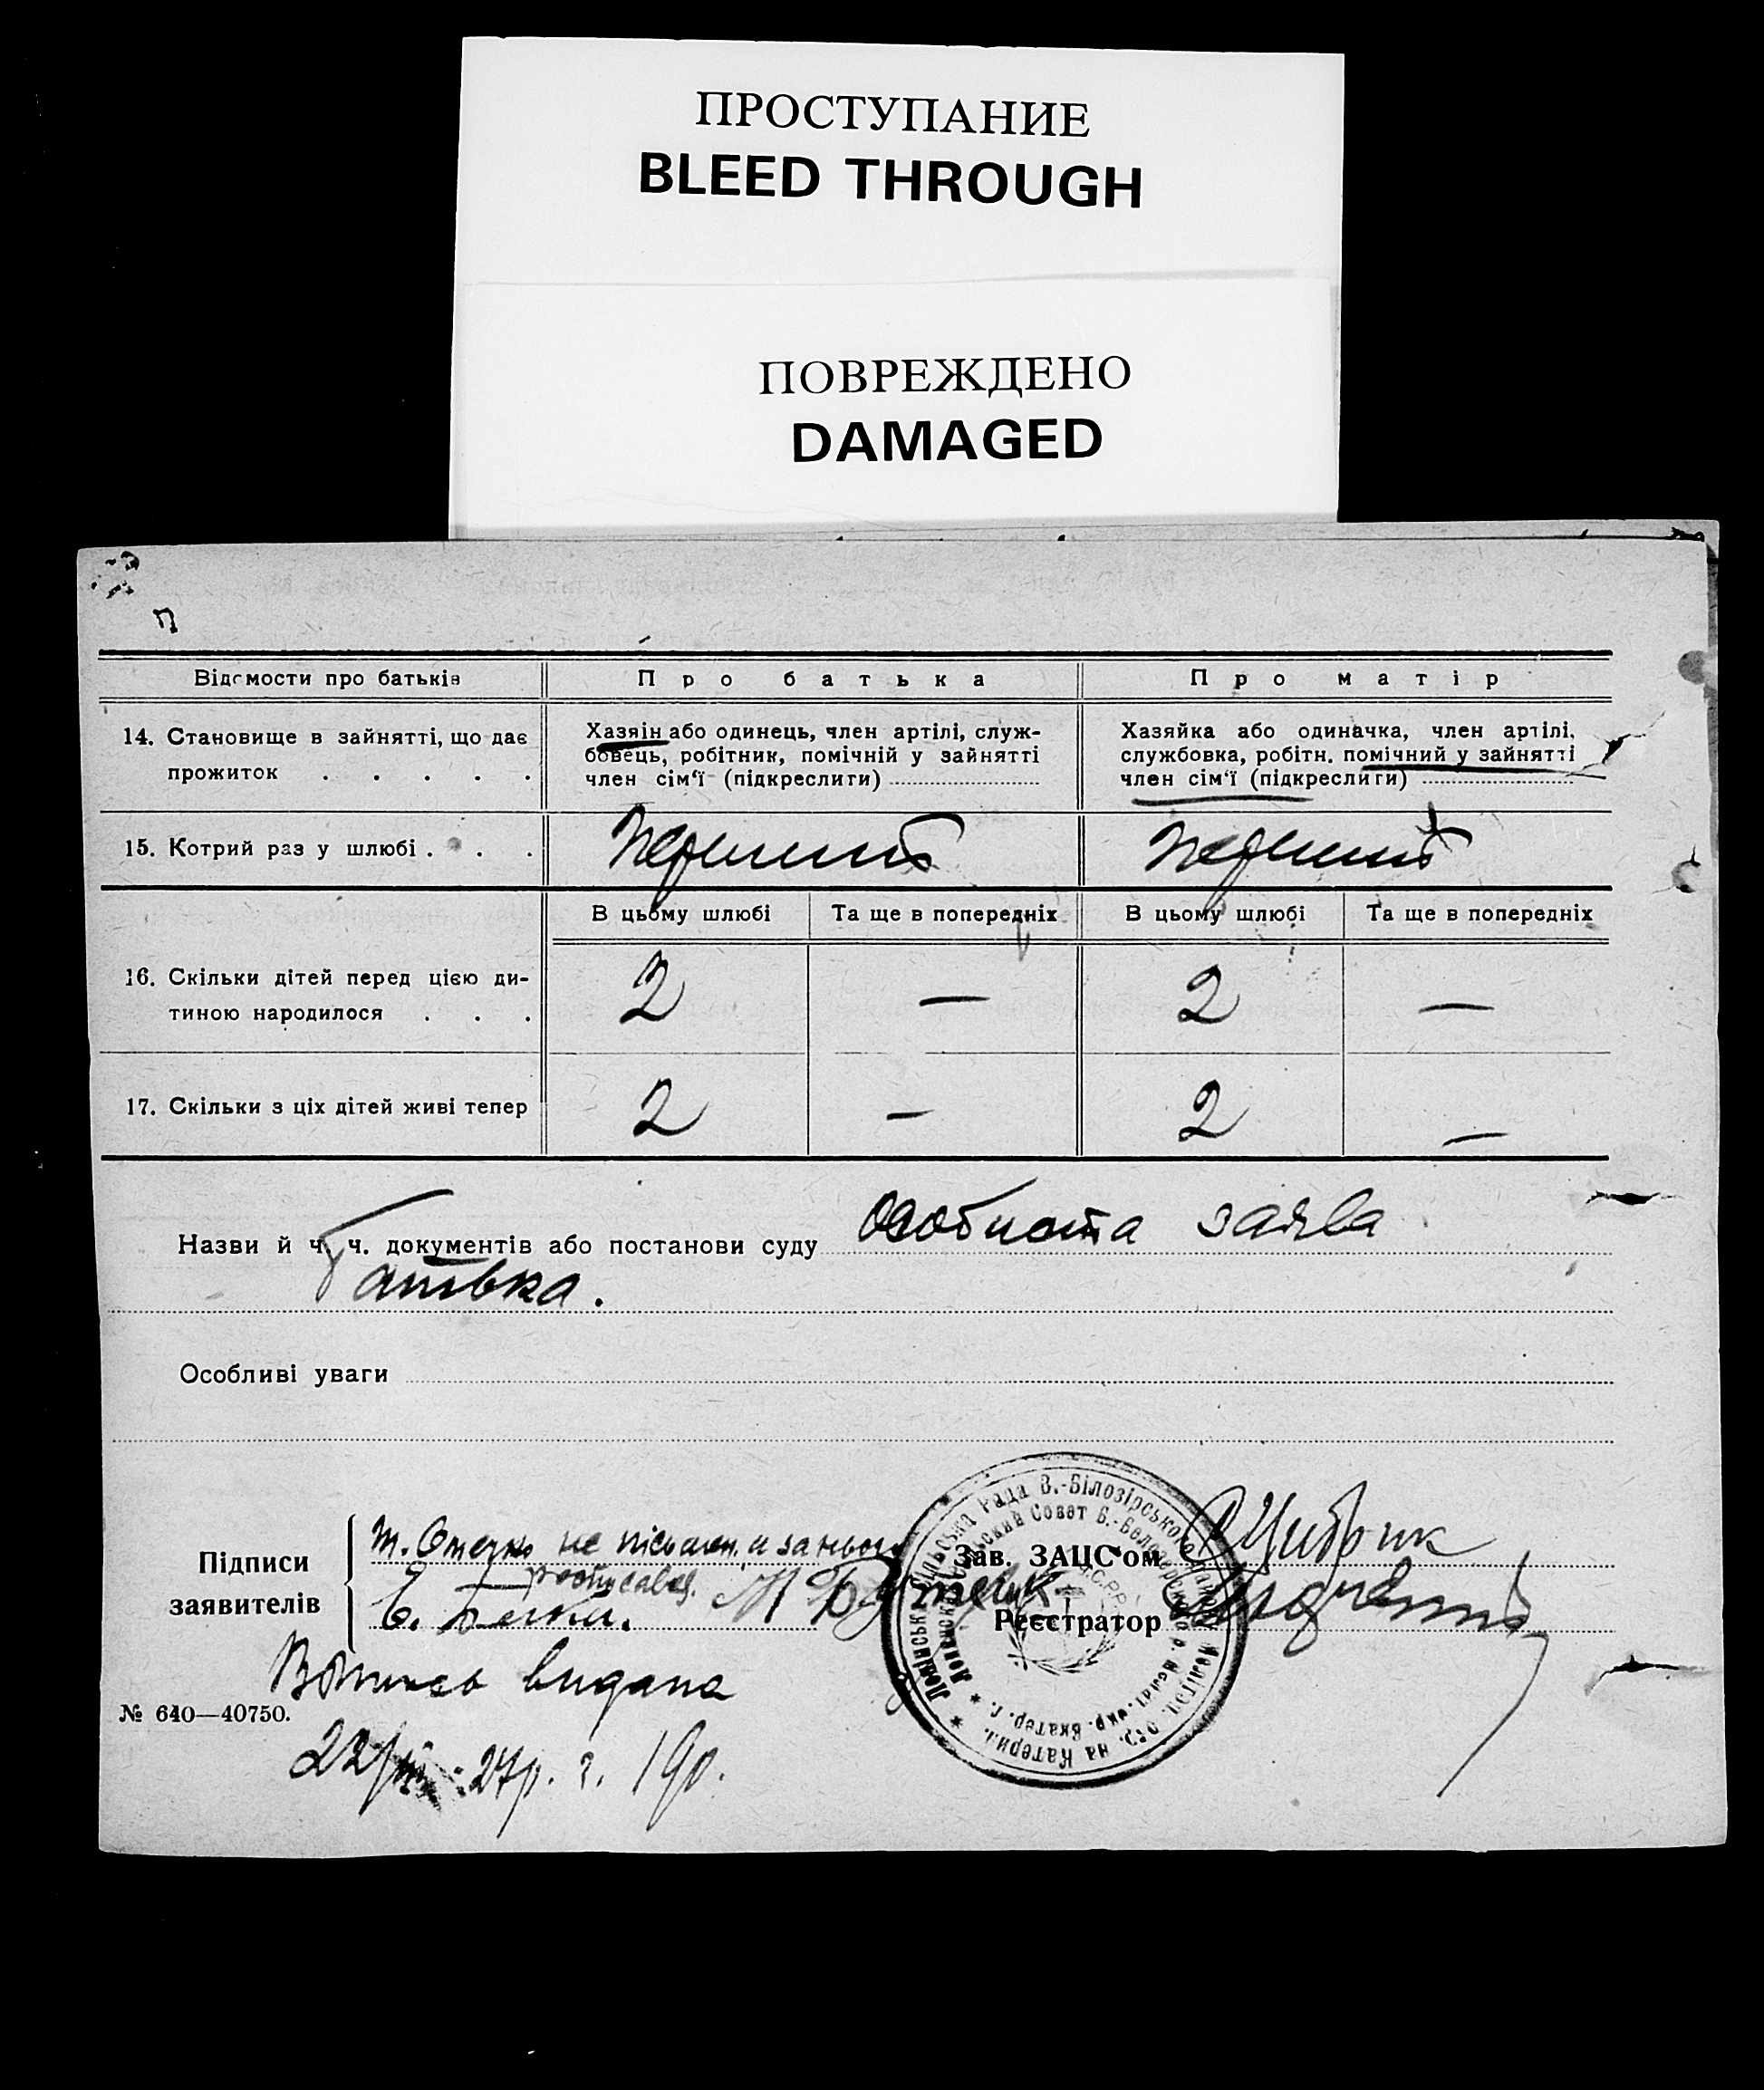 ПРОСТУПАНИЕ
BLEED THROUGH
ПОВРЕЖДЕНО
DAMAGED
П
Відомости про батьків
Про батька
Про матір
14. Становище в зайнятті, що дає
прожиток . . . . .
Хазяїн або одинець, член артілі, служ-
бовець, робітник, помічній у зайнятті
член сім'ї (підкреслити)
Хазяйка або одиначка, член артілі,
службовка, робітн. помічний у зайнятті
член сім'ї (підкреслити)
15. Котрий раз у шлюбі . . . .
перший
перший
В цьому шлюбі
Та ще в попередніх
В цьому шлюбі
Та ще в попередніх
16. Скільки дітей перед цією ди-
тиною народилося . . .
2 — 2 —
17. Скільки з ціх дітей живі тепер
2 — 2 —
Назви й ч. ч. документів або постанови суду особиста заява
батька.
Особливі уваги
Підписи
заявителів
не письмен. и за нього
росписався.
Зав. ЗАЦС'ом
Реєстратор
Рада В.-Білозірського
Совет Б.-Белозерского
Выпись видана
№ 640—40750.
27р. г. 190.